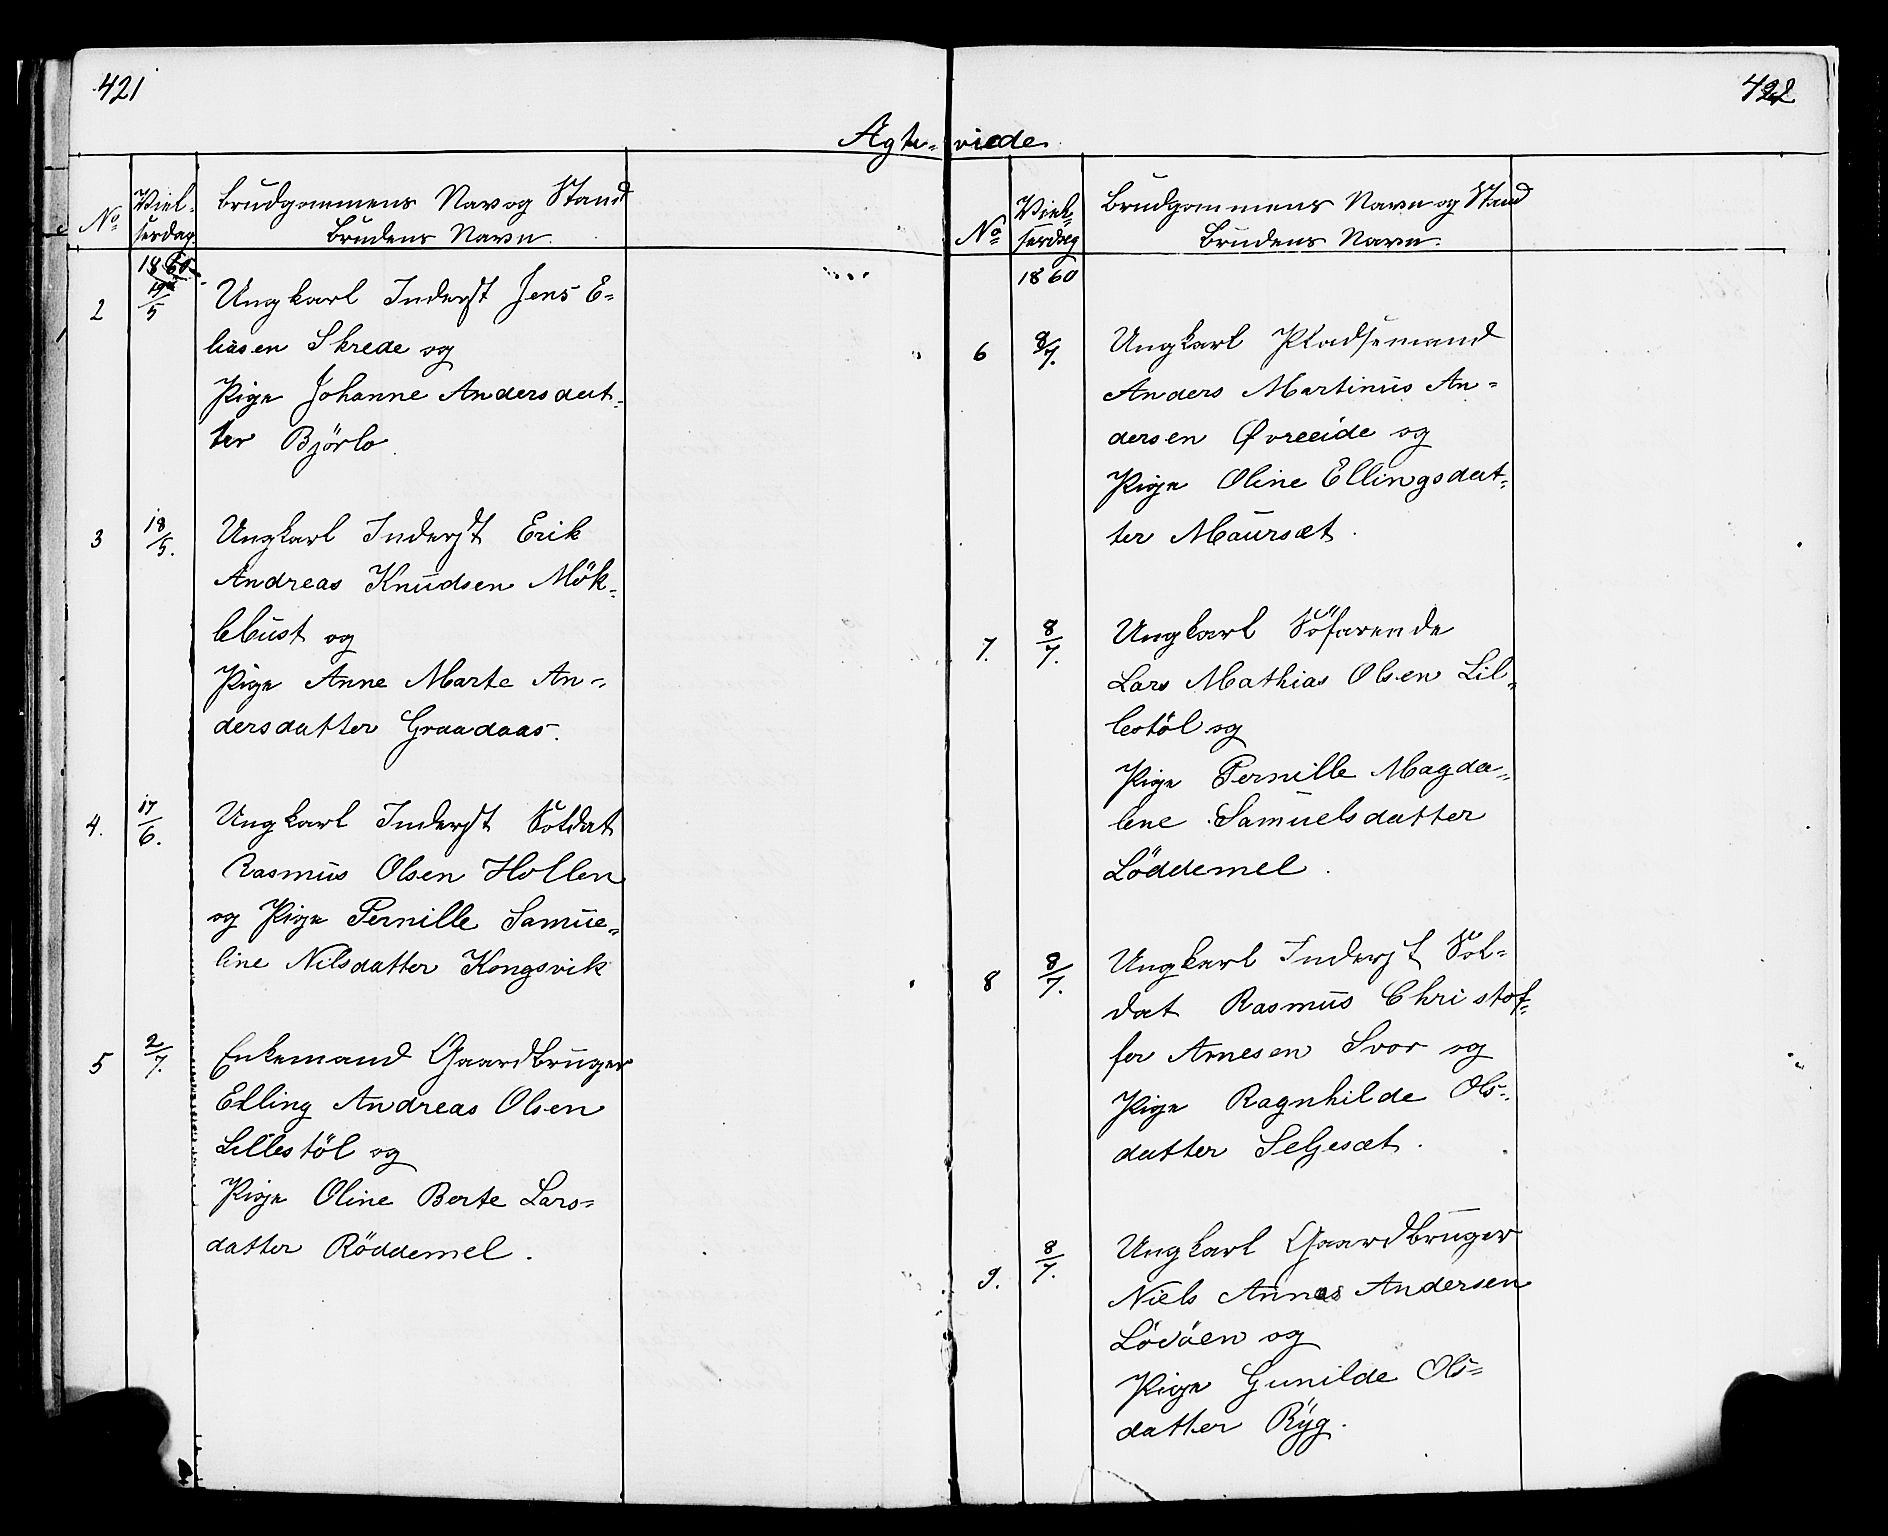 421
422
Agte-viede
No
Viel-
serdag
Brudgommens Nav og Stand
Brudens Navn.
1860
19/5
2
Ungkarl Inderst Jens E-
liasen Skrede og
Pige Johanne Andersdat-
ter Björlo.
3
18/5.
Ungkarl Inderst Erik
Andreas Knudsen Mök-
lebust og
Pige Anne Marte An-
dersdatter Graadaas.
4.
17/6.
Ungkarl Inderst Soldat
Rasmus Olsen Hollen
og Pige Pernille Samue-
line Nilsdatter Kongsvik
5
2/7.
Enkemand Gaardbruger
Elling Andreas Olsen
Lillestöl og
Pige Oline Berte Lars-
datter Röddemel.
No
Viel-
serdag
Brudgommens Navn og Stand
Brudens Navn.
1860
6
8/7.
Ungkarl Pladsemand
Anders Martinus An-
dersen Øvreeide og
Pige Oline Ellingsdat-
ter Maurset.
7.
8/7.
Ungkarl Söfarende
Lars Mathias Olsen Lil-
lestöl og
Pige Pernille Magda-
lene Samuelsdatter
Löddemel.
8
8/7.
Ungkarl Inderst Sol-
dat Rasmus Christof-
fer Arnesen Svor og
Pige Ragnhilde Ols-
datter Seljeset.
9.
8/7.
Ungkarl Gaardbruger
Niels Annas Andersen
Lödöen og
Pige Gunilde Ols-
datter Ryg.